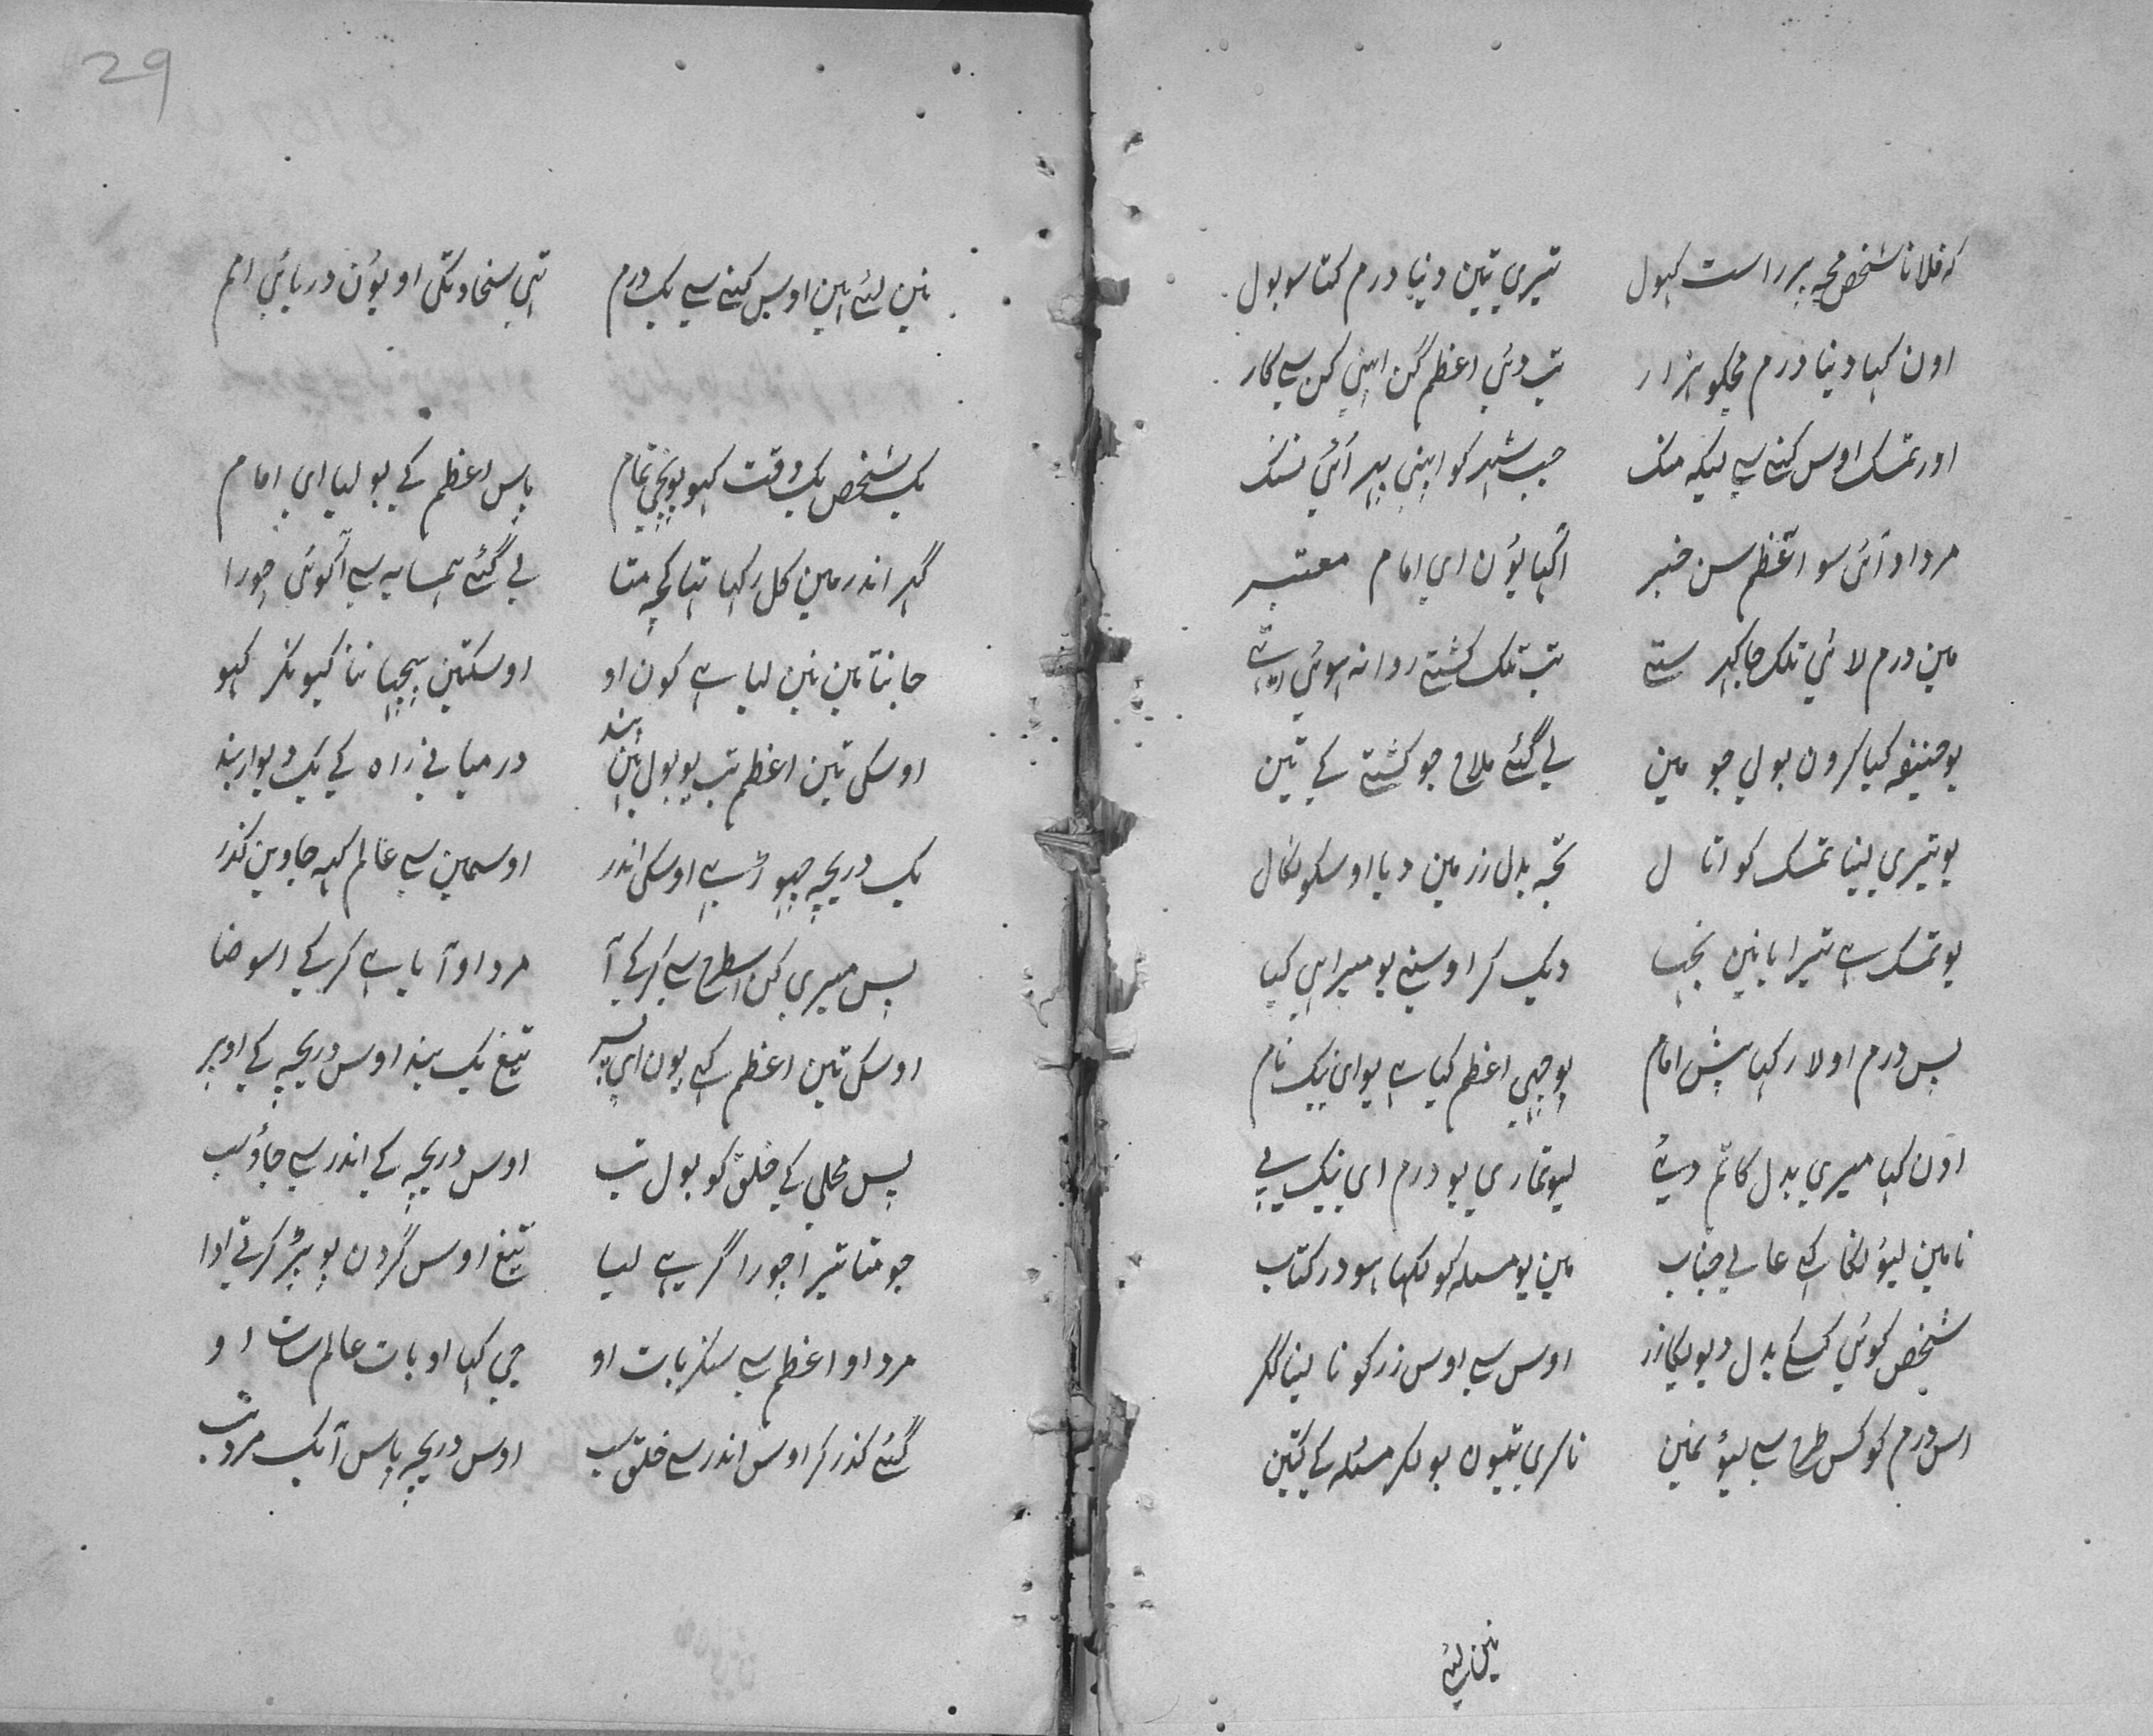 که فلانا شخص مجه پر راست کهول تیری تین دینا درم کتا سو بول
اون کہا دینا درم مجکو ہزار تب دئی اعظم گن اپنی کن سے کار
اور تمسک اوس کنے سے لیکه جب شہر کو اپنی پہر آئی
مرد او آئی سو اعظم سن خبر کہا یؤن ای امام معتبر
مین درم لائی تلک جا کہر ستے تب تلک کشتے روانه ہوئی
بو حنیفه کیا کرون بولی جو مین لی گئے ملاح جو کشتے کے تین
یو تیری لینا تمسک کو اتال تجه بدل زر مین دیا اوسکو نکال
یو تمسک ہے تیرا یا نین دیک کر اوسنے یو میرا ہی کیا
پس درم اولا رکہا پیش امام پوچہی اعظم کیا ہے یو ای نیک نام
اون کہا میری بدل کا تم دئے لیو تماری یو درم ای نیک پے
نا مین لیؤنکا کہے عالے جناب مین یو مسله کو لکہا ہو در کتاب
شخص کوئی کسکے بدل دیویکا زر اوس سے اوس زر کو نا لینا مگر
اس درم کو کس طرح سے لیؤ نمین نا کری تیون بولکر مسئله کے تین
نین لئے
29
نین لئے ہین اوس کنے سے یک درم تہی سخاوتکی او یؤن دریائی
یک شخص یک وقت پاس اعظم کے بولیا ای امام
گہر اندر مین کل رکہا تہا کچه متا لی گئے ہمسایه سے آ کوئی چورا
جانتا مین نین لیا ہے کون او اوسکتین پہچاننا کیونکر کہو
اوسکی تین اعظم تب یو بول درمیانی راه کے یک دیوار بند
یک دریچه چہوڑ ہے اوسکی اندر اوسمین سے عالم جاوین گذر
پس میری کن اسطرح سے کر کے آ مرد او آیا ہے کر کے
اوسکی تین اعظم کہے یون ای پسر تیغ یک بند اوس دریچه کے اوپر
پس محلے کے خلق کو بول تب اوس دریچه کے اندر سے جاؤ سب
جو متا تیرا چورا گر ہے لیا تیغ اوس گردن پو پڑ کرتے ادا
مرد او اعظم سے سنکر بات او جی کہا او بات عالم سات او
گئے گذر کر اوس اندر سے خلق سب اوس دریچه پاس آ یک مرد تب